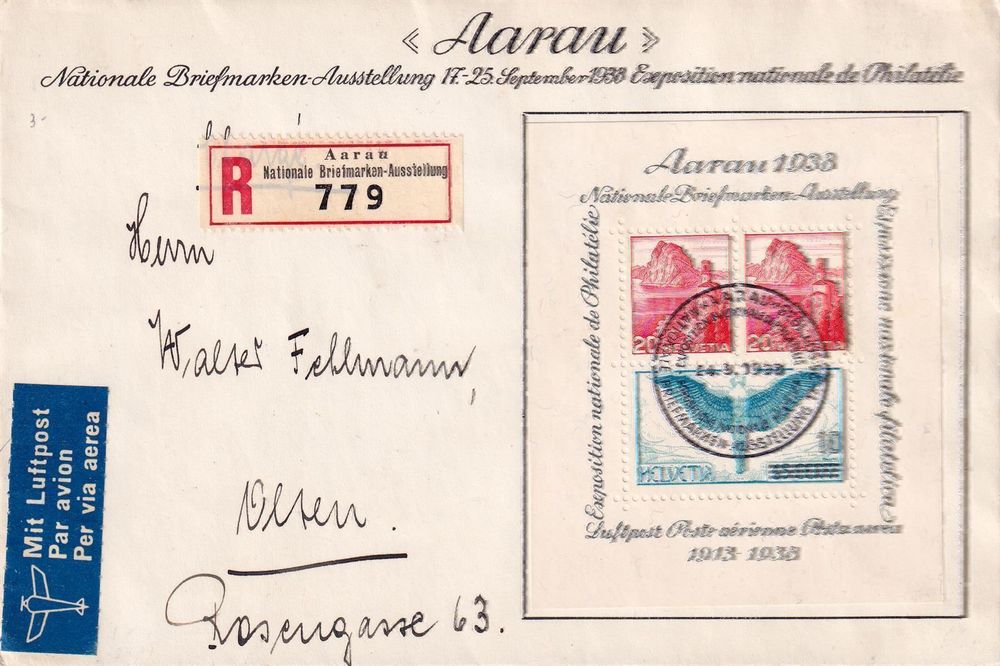 « Aarau »
Nationale Briefmarken-Ausstellung 17.-25. September 1938 Exposition nationale de Philatélie
3-
R
Aarau
Nationale Briefmarken-Ausstellung
779
Herrn
Walter Fehlmann,
Olten.
Rosengasse 63.
Mit Luftpost
Par avion
Per via aerea
Aarau 1938
Nationale Briefmarken-Ausstellung
Exposition nationale de Philatélie
20
HELVETIA
20
HELVETIA
HELVETIA
10
Luftpost Poste aérienne Posta aerea
1913-1938